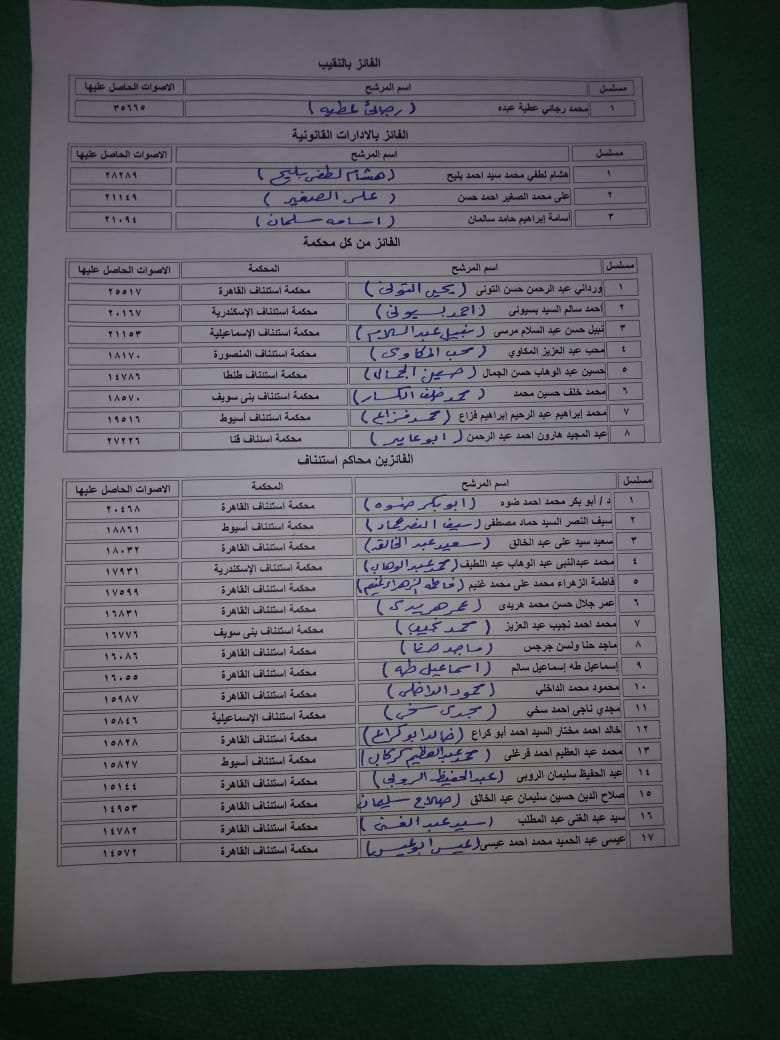 الفائز بالنقيب
مسلسل اسم المرشح الاصوات الحاصل عليها
١ محمد رجاني عطية عبده (رجائى عطيه) ٣٥٦٦٥
الفائز بالادارات القانونية
مسلسل اسم المرشح الاصوات الحاصل عليها
١ هشام لطفي محمد سيد احمد بليح (هشام لطفى بليح) ٢٨٢٨٩
٢ على محمد الصغير احمد حسن (على الصغير) ٢١١٤٩
٣ أسامة إبراهيم حامد سالمان (اسامه سلمان) ٢١٠٩٤
الفائز من كل محكمة
مسلسل اسم المرشح المحكمة الاصوات الحاصل عليها
١ ورداني عبد الرحمن حسن التونى (يحيى التونى) محكمة استئناف القاهرة ٢٥٥١٧
٢ احمد سالم السيد بسيونى (احمد بسيونى) محكمة استئناف الإسكندرية ٢٠١٦٧
٣ نبيل حسن عبد السلام مرسى (نبيل عبد السلام) محكمة استئناف الإسماعيلية ٢١١٥٣
٤ محب عبد العزيز المكاوي (محب المكاوى) محكمة استئناف المنصورة ١٨١٧٠
٥ حسين عبد الوهاب حسن الجمال (حسين الجمال) محكمة استئناف طنطا ١٤٧٨٦
٦ محمد خلف حسين محمد (محمد خلف الكسار) محكمة استئناف بنى سويف ١٨٥٧٠
٧ محمد إبراهيم عبد الرحيم إبراهيم فزاع (محمد فزاع) محكمة استئناف أسيوط ١٩٥١٦
٨ عبد المجيد هارون احمد عبد الرحمن (ابو عابد) محكمة اسئناف قنا ٢٧٢٢٦
الفائزين محاكم استئناف
مسلسل اسم المرشح المحكمة الاصوات الحاصل عليها
١ د / أبو بكر محمد احمد ضوه (ابو بكر ضوه) محكمة استئناف القاهرة ٢٠٤٦٨
٢ سيف النصر السيد حماد مصطفى (سيف النصر حماد) محكمة استئناف أسيوط ١٨٨٦١
٣ سعيد سيد على عبد الخالق (سعيد عبد الخالق) محكمة استئناف القاهرة ١٨٠٣٢
٤ محمد عبدالنبى عبد الوهاب عبد اللطيف (محمد عبد الوهاب) محكمة استئناف الإسكندرية ١٧٩٣١
٥ فاطمة الزهراء محمد على محمد غنيم (فاطمه الزهراء غنيم) محكمة استئناف القاهرة ١٧٥٩٩
٦ عمر جلال حسن محمد هريدى (عمر هريدى) محكمة استئناف القاهرة ١٦٨٣١
٧ محمد احمد نجيب عبد العزيز (محمد نجيب) محكمة استئناف بنى سويف ١٦٧٧٦
٨ ماجد حنا ولسن جرجس (ماجد حنا) محكمة استئناف القاهرة ١٦٠٨٦
٩ إسماعيل طه إسماعيل سالم (اسماعيل طه) محكمة استئناف القاهرة ١٦٠٥٥
١٠ محمود محمد الداخلي (محمود الداخلى) محكمة استئناف القاهرة ١٥٩٨٧
١١ مجدي ناجى احمد سخي (مجدى سخى) محكمة استئناف الإسماعيلية ١٥٨٤٦
١٢ خالد احمد مختار السيد احمد أبو كراع (خالد ابو كراع) محكمة استئناف القاهرة ١٥٨٢٨
١٣ محمد عبد العظيم احمد فرغلى (محمد عبد العظيم كركاب) محكمة استئناف أسيوط ١٥٨٢٧
١٤ عبد الحفيظ سليمان الروبى (عبد الحفيظ الروبى) محكمة استئناف القاهرة ١٥١٤٤
١٥ صلاح الدين حسين سليمان عبد الخالق (صلاح سليمان محكمة استئناف القاهرة ١٤٩٥٣
١٦ سيد عبد الغنى عبد المطلب (سيد عبد الغنى) محكمة استئناف القاهرة ١٤٧٨٢
١٧ عيسى عبد الحميد محمد احمد عيسى (عيسى ابو عيسى) محكمة استئناف القاهرة ١٤٥٧٢